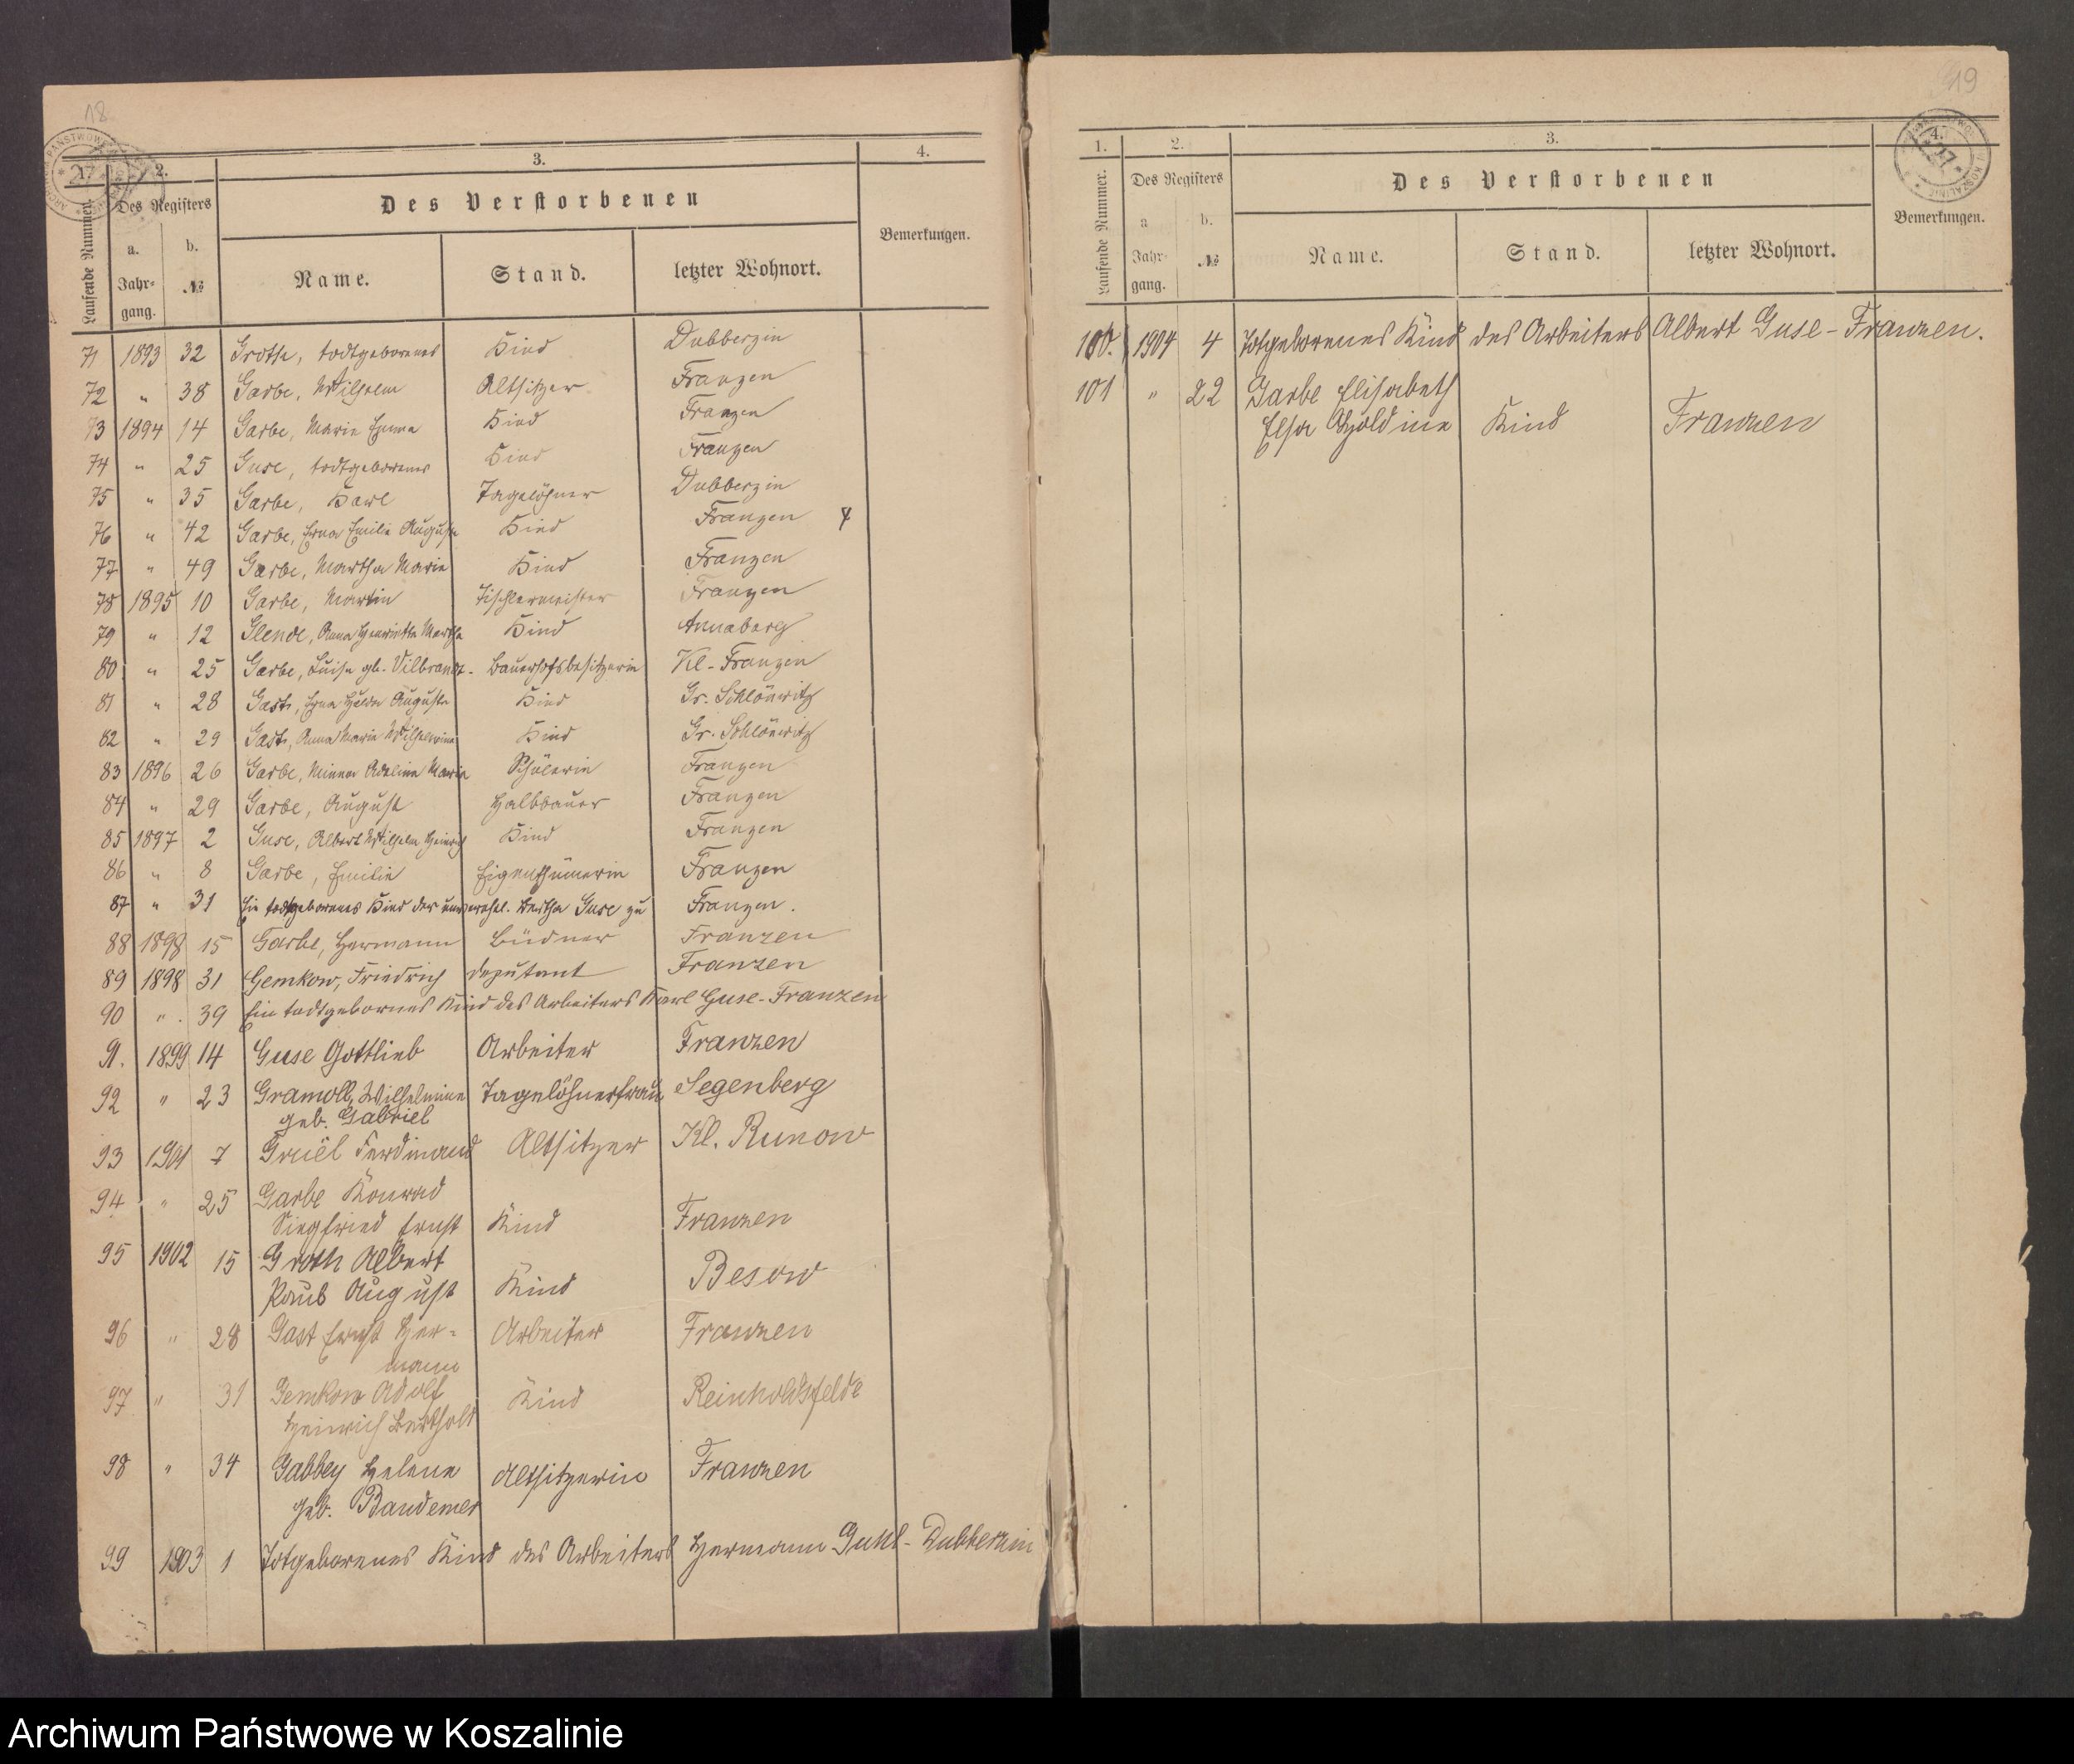 18
1.
2.
3.
4.
Laufende Nummer.
Des Registers
Des Verstorbenen
Bemerkungen.
a.
b.
Jahr-
gang.
№
Name.
Stand.
letzter Wohnort.
71 1893 32 Groth, todtgeborenes Kind Dubberzin
72 " 38 Garbe, Wilhelm Altsitzer Franzen
73 1894 14 Garbe, Marie Emma Kind Franzen
74 " 25 Guse, todtgeborenes Kind Franzen
75 " 35 Garbe, Karl Tagelöhner Dubberzin
76 " 42 Garbe, Erna Emilie Auguste Kind Franzen
77 " 49 Garbe, Martha Marie Kind Franzen
78 1895 10 Garbe, Martin Tischlermeister Franzen
79 " 12 Glende, Anna Henriette Martha Kind Annaberg
80 " 25 Garbe, Luise gb. Vilbrandt - Bauerhofsbesitzerin Kl-Franzen
81 " 28 Gast, Erna Hulda Auguste Kind Gr. Schlönwitz
82 " 29 Gast, Anna Marie Wilhelmine Kind Gr. Schlönwitz
83 1896 26 Garbe, Minna Adeline Marie Schülerin Franzen
84 " 29 Garbe, August Halbbauer Franzen
85 1897 2 Guse, Albert Wilhelm Heinrich Kind Franzen
86 " 8 Garbe, Emilie Eigenthümerin Franzen
87 " 31 Ein todtgeborenes Kind der unverehl. Bertha Guse zu Franzen.
88 1898 15 Garbe, Hermann Büdner Franzen
89 1898 31 Gemkow, Friedrich Deputant Franzen
90 " . 39 Ein todtgebornes Kind des Arbeiters Karl Guse-Franzen
91. 1899 14 Guse Gottlieb Arbeiter Franzen
92 " 23 Gramoll, Wilhelmine Tagelöhnerfrau Segenberg
geb. Gabriel
93 1901 7 Grüel Ferdinand Altsitzer Kl. Runow
94 " 25 Garbe Konrad
Siegfried Ernst Kind Franzen
95 1902 15 Groth Albert
Paul August Kind Besow
96 " 28 Gast Ernst Her- Arbeiter Franzen
mann
97 " 31 Gemkow Adolf Kind Reinholdsfelde
Heinrich Berthold
98 " 34 Gabbey Helene Altsitzerin Franzen
geb. Bandemer
99 1903 1 Totgeborenes Kind des Arbeiters Hermann Guhl - Dubberzin
19
1.
2.
3.
4.
Laufende Nummer.
Des Registers
Des Verstorbenen
Bemerkungen.
a
b.
Jahr-
gang.
№
Name.
Stand.
letzter Wohnort.
100. 1904 4 Totgeborenes Kind des Arbeiters Albert Guse - Franzen.
101 " 22 Garbe Elisabeth
Elsa Holdine Kind Franzen
Archiwum Państwowe w Koszalinie